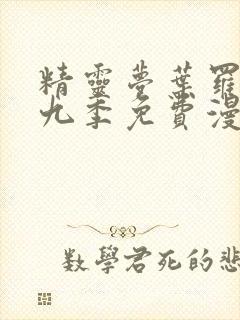 精靈夢葉羅
九季免費漫
數學君死的悲